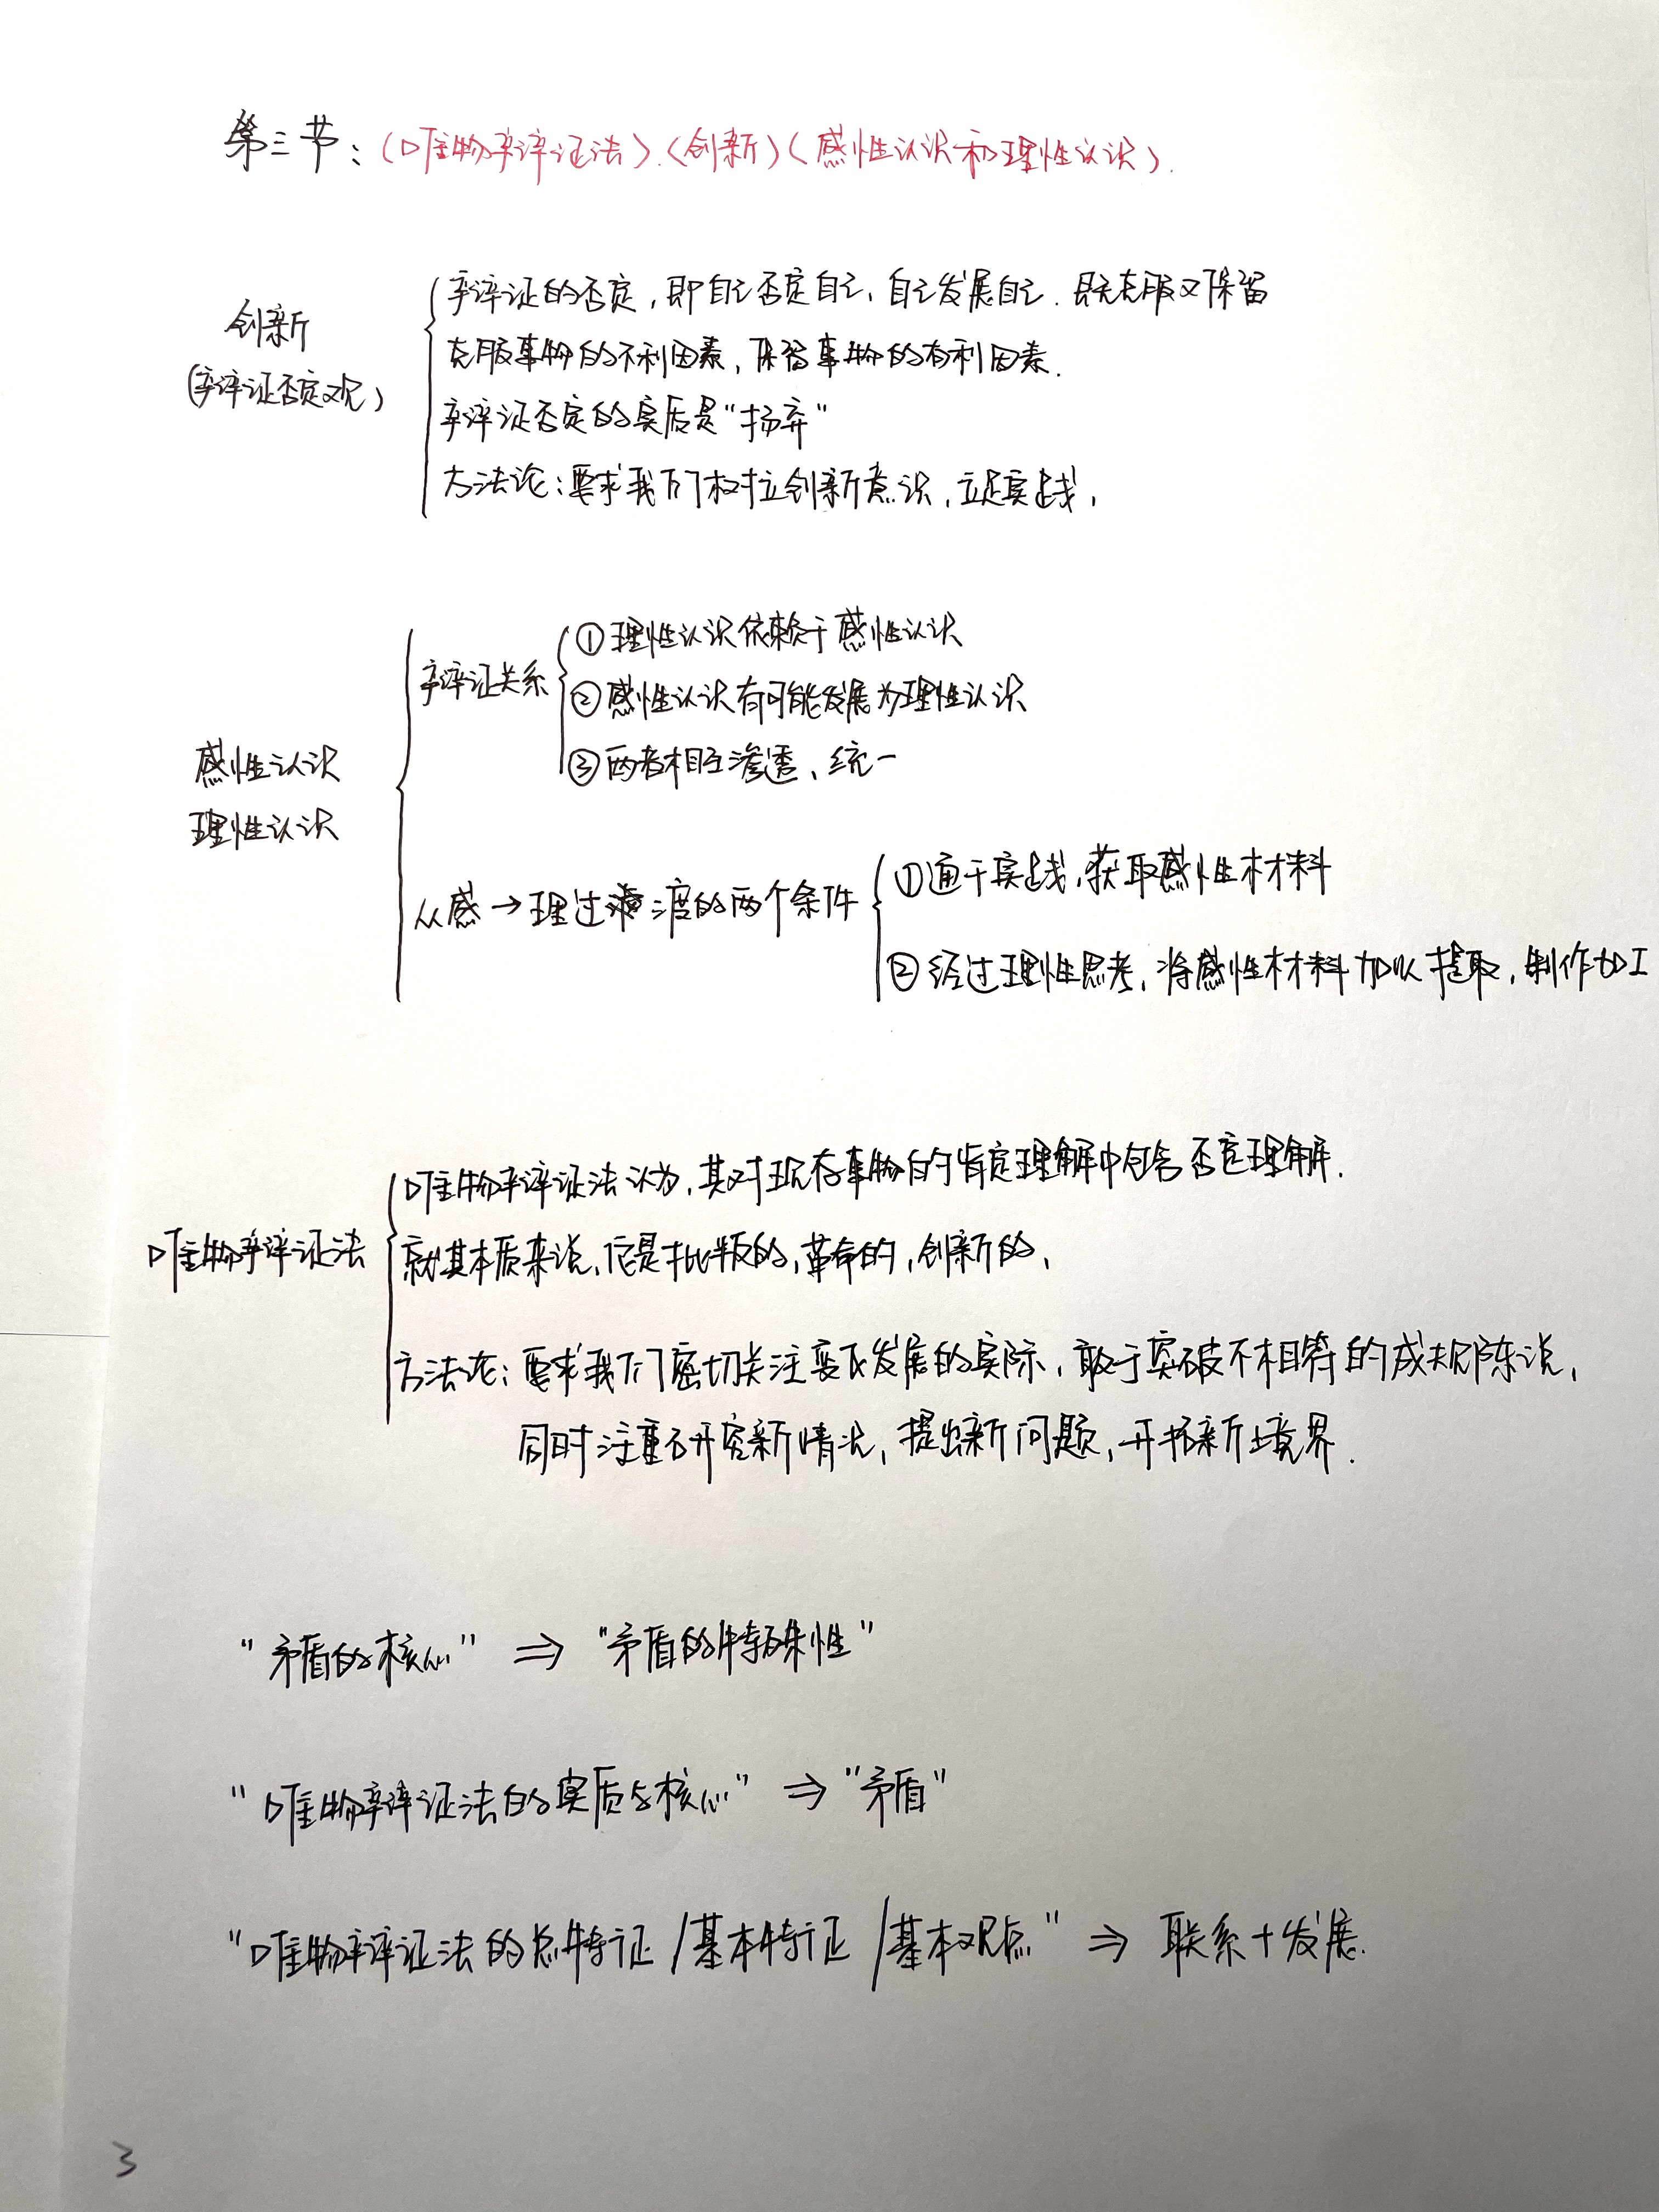 第三节：(唯物辩证法).(创新)(感性认识和理性认识).
创新
(辩证否定观)
辩证的否定，即自己否定自己，自己发展自己.既克服又保留
克服事物的不利因素，保留事物的有利因素.
辩证否定的实质是"扬弃"
方法论：要求我们树立创新意识，立足实践，
感性认识
理性认识
辩证关系
①理性认识依赖于感性认识
②感性认识有可能发展为理性认识
③两者相互渗透、统一
从感→理过渡的两个条件
①通于实践，获取感性材料
②经过理性思考，将感性材料加以提取，制作加工
唯物辩证法
唯物辩证法认为，其对现存事物的肯定理解中包含否定理解.
就其本质来说，它是批判的，革命的，创新的，
方法论：要求我们密切关注变化发展的实际，敢于突破不相符的成规陈说，
同时注重研究新情况，提出新问题，开拓新境界.
"矛盾的核心" ⇒ "矛盾的特殊性"
"唯物辩证法的实质与核心" ⇒ "矛盾"
"唯物辩证法的总特征/基本特征/基本观点" ⇒ 联系+发展.
3